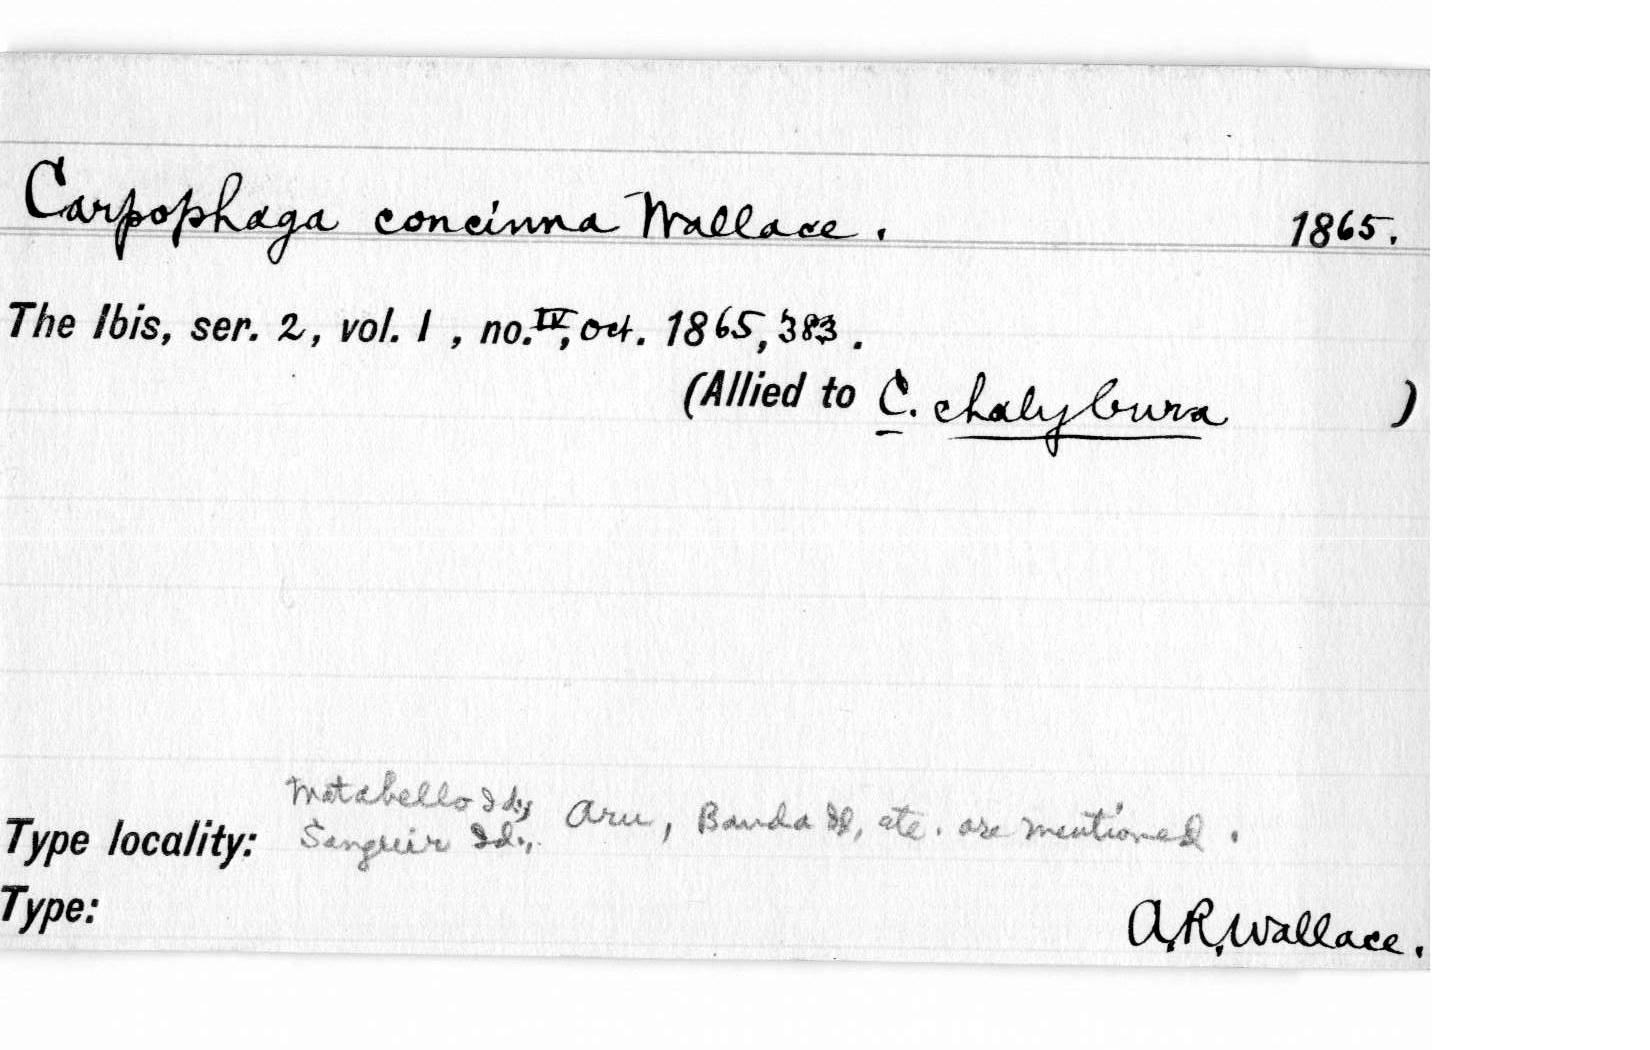 Carpophaga concinna Wallace. 1865.
The Ibis, ser. 2, vol. 1, no. IV, Oct. 1865, 383.
(Allied to C. chalybura )
Matabello Ids, Aru, Banda Id, etc. are mentioned.
Type locality: Sanguir Ids.,
Type: A.R. Wallace.